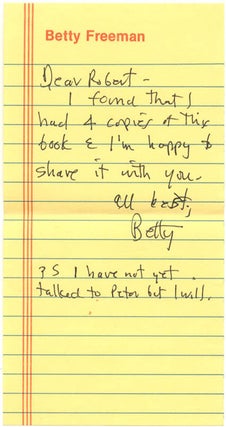 Betty Freeman
Dear Robert -
I found that I
had 4 copies of this
book & I'm happy to
share it with you.
All best,
Betty
PS I have not yet
talked to Peter but I will.